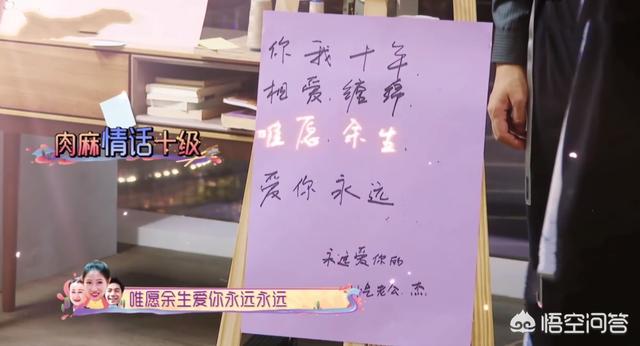 你我十年
相爱缠绵
唯愿余生
爱你永远
永远爱你的
老公 杰
肉麻情话十级
唯愿余生爱你永远永远
悟空问答